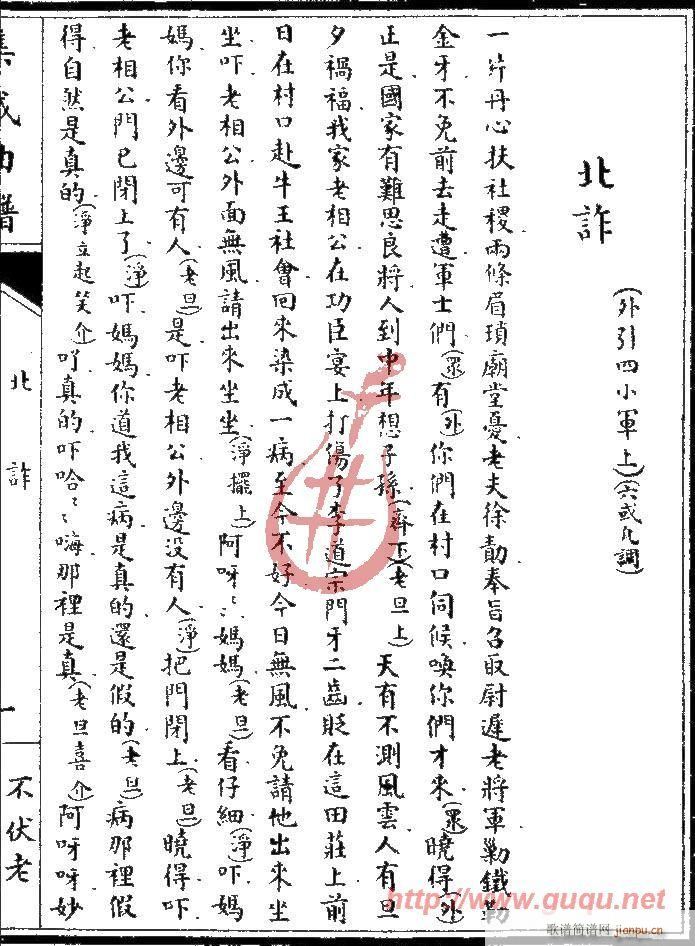 北詐
(外引四小軍上)(六或凡調)
一片丹心扶社稷兩條眉瑣廟堂憂老夫徐勣奉旨召取尉遲老將軍勦鐵勒
金牙不免前去走遭軍士們(眾)有(外)你們在村口伺候喚你們才來(眾)曉得(外)
正是國家有難思良將人到中年想子孫(齊下)(老旦上)天有不測風雲人有旦
夕禍福我家老相公在功臣宴上打傷了李道宗門牙二齒貶在這田莊上前
日在村口赴牛王社會回來染成一病至今不好今日無風不免請他出來坐
坐吓老相公外面無風請出來坐坐(淨擺上)阿呀〻媽媽(老旦)看仔細(淨)吓媽
媽你看外邊可有人(老旦)是吓老相公外邊没有人(淨)把門閉上(老旦)曉得吓
老相公門已閉上了(淨)吓媽媽你道我這病是真的還是假的(老旦)病那裡假
得自然是真的(淨立起笑介)吖真的吓哈〻〻嗨那裡是真(老旦喜介)阿呀呀妙
集成曲譜
北詐
一
不伏老
http://www.guqu.net
歌谱简谱网
jianpu.cn